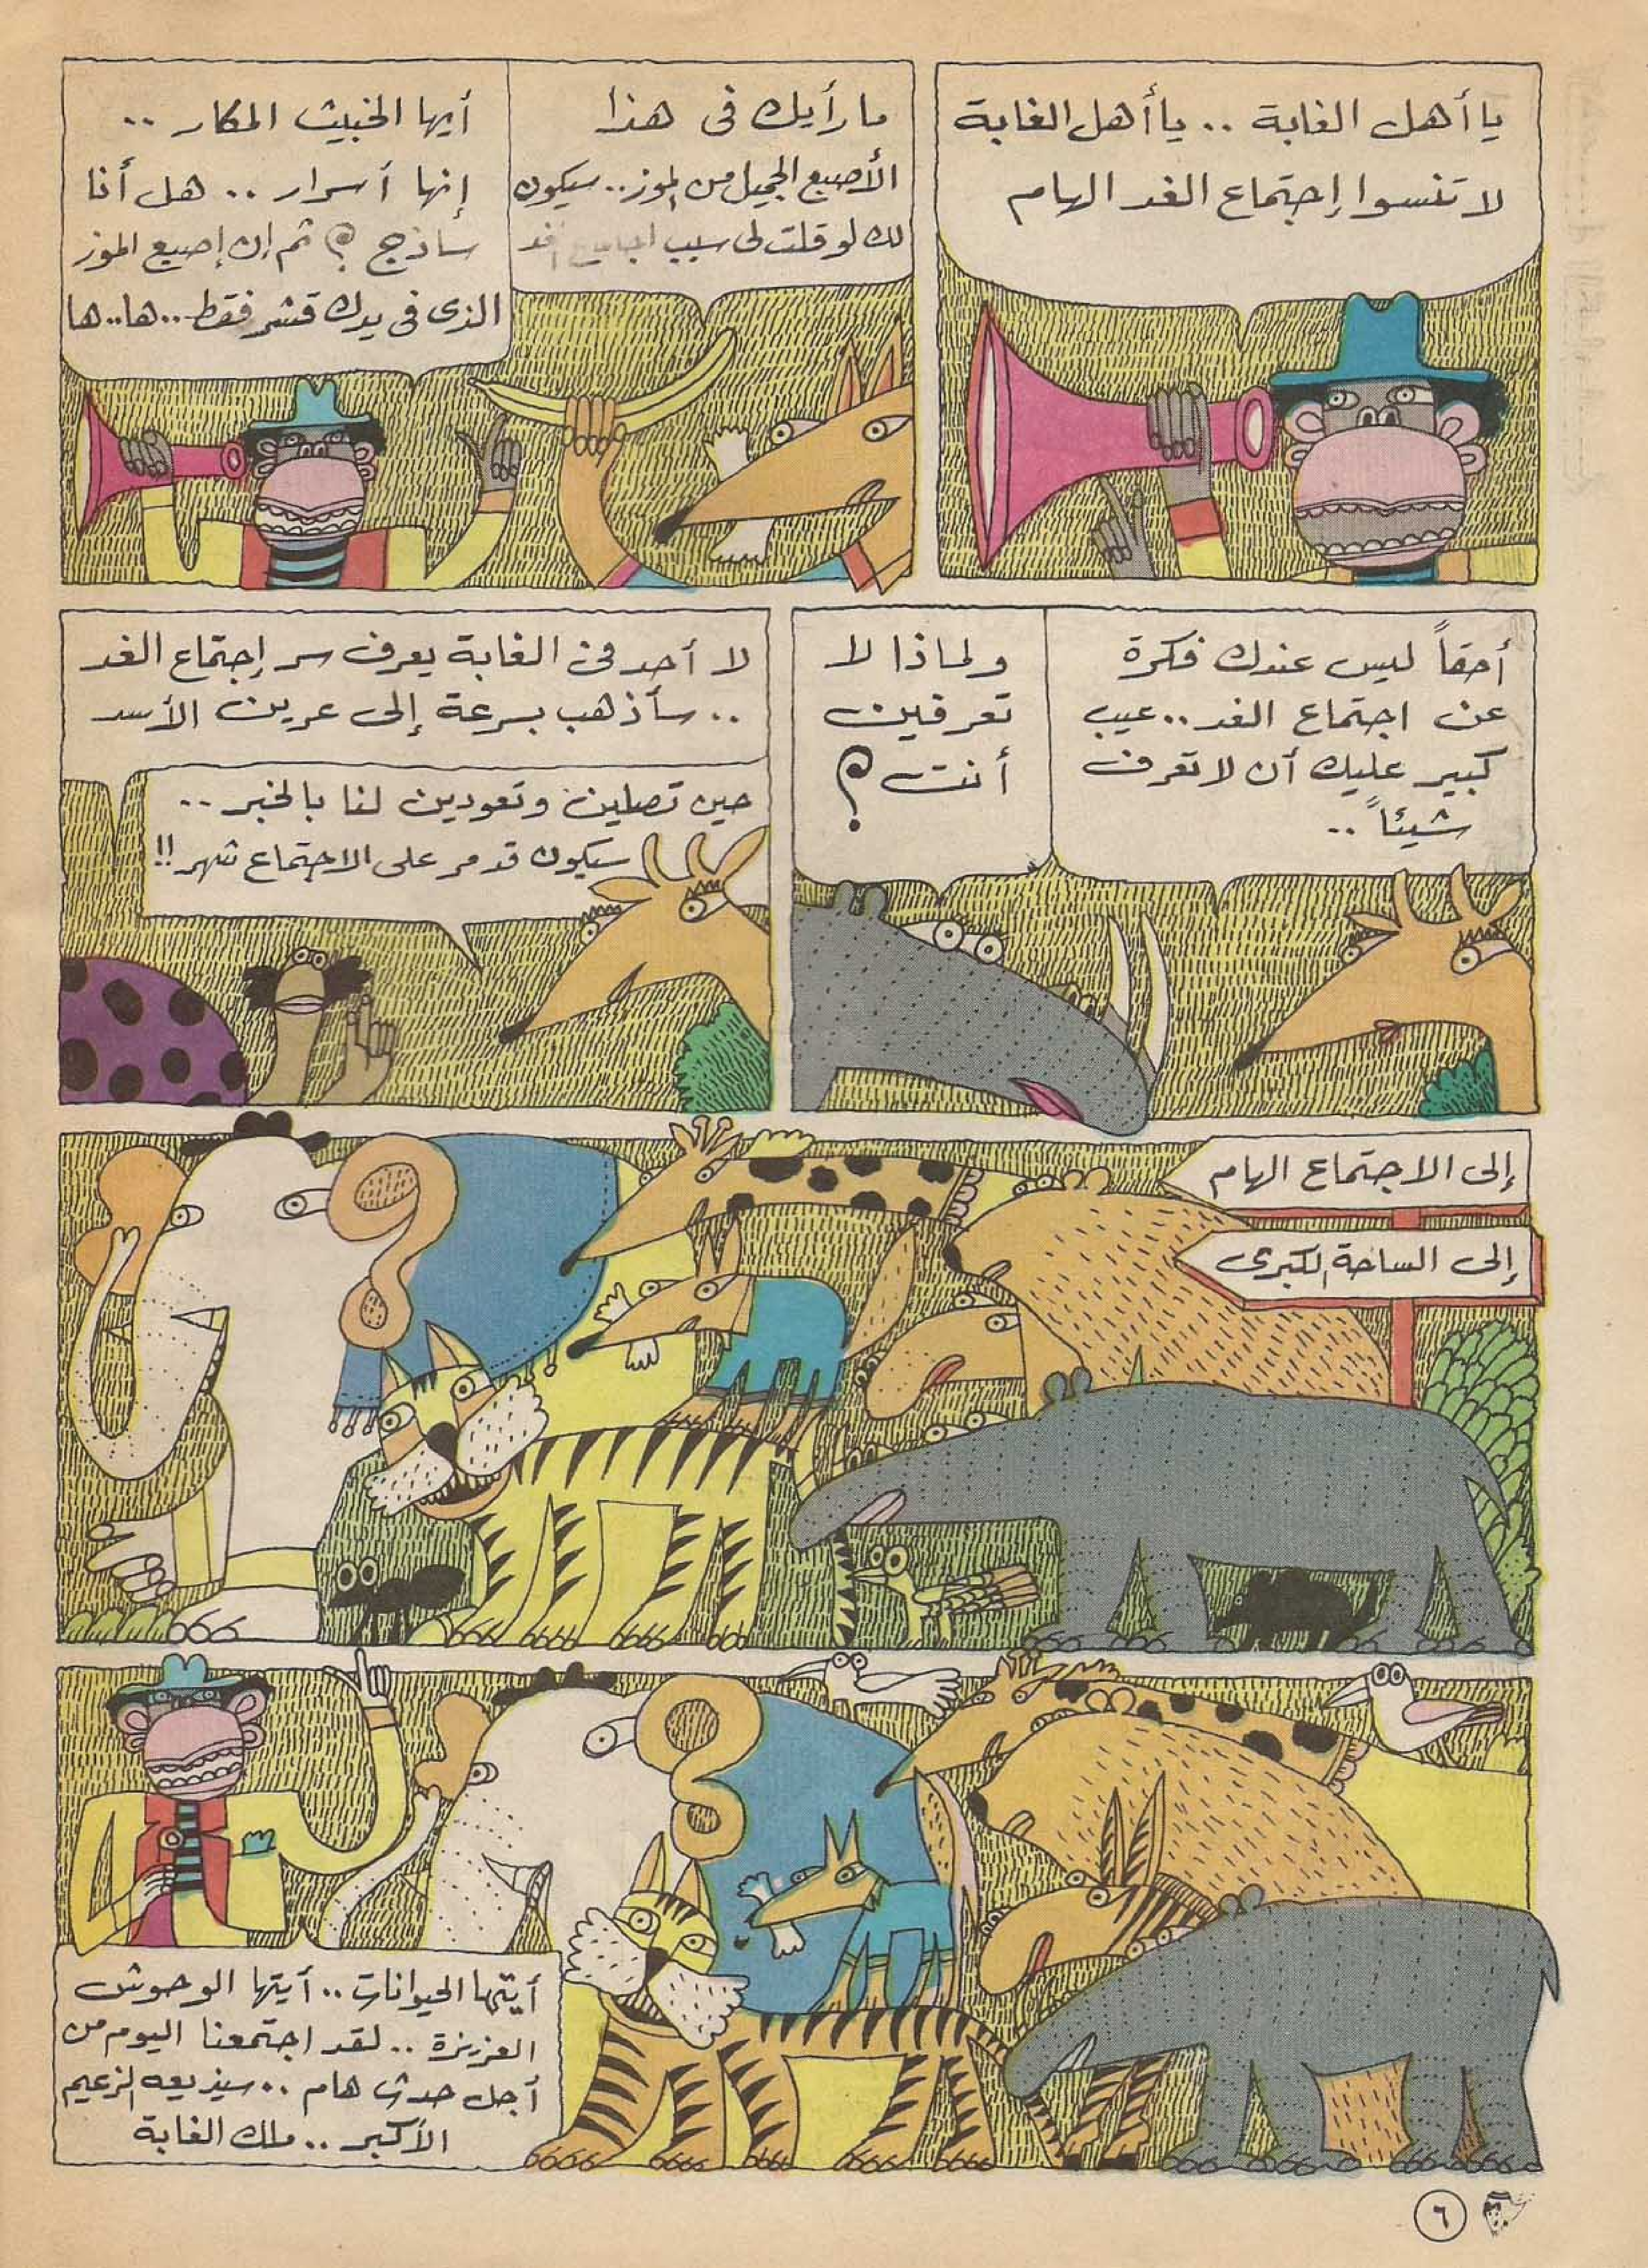 يا أهل الغابة .. يا أهل الغابة
لا تنسوا إجتماع الغد الهام
ما رأيك فى هذا
الأصبع الجميل من الموز.. سيكون
لك لو قلت لى سبب
أيها الخبيث المكار ..
إنها أسرار .. هل أنا
ساذج ؟ ثم إن إصبع الموز
الذى فى يدك قشر فقط... ها.. ها
أحقاً ليس عندك فكرة
عن اجتماع الغد .. عيب
كبير عليك أن لا تعرف
شيئاً ..
ولماذا لا
تعرفين
أنت ؟
لا أحد فى الغابة يعرف سر إجتماع الغد
.. سأذهب بسرعة إلى عرين الأسد
حين تصلين وتعودين لنا بالخبر ..
سيكون قد مر على الاجتماع شهر !!
إلى الاجتماع الهام
إلى الساحة الكبرى
أيتها الحيوانات .. أيتها الوحوش
العزيزة .. لقد اجتمعنا اليوم من
أجل حدث هام .. سيذيعه الزعيم
الأكبر .. ملك الغابة
٦